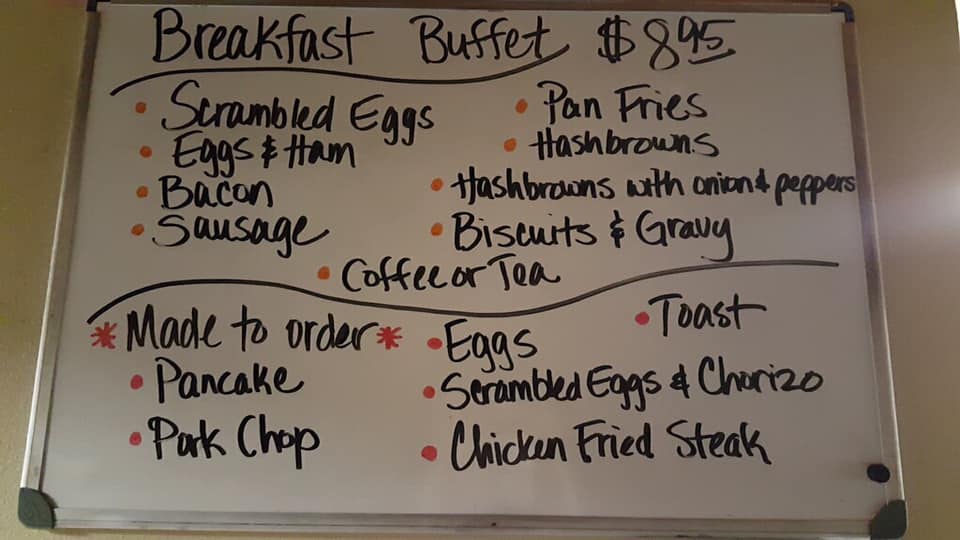 Breakfast Buffet $8.95
• Scrambled Eggs
• Eggs & Ham
• Bacon
• Sausage
• Pan Fries
• Hashbrowns
• Hashbrowns with onion & peppers
• Biscuits & Gravy
• Coffee or Tea
*Made to order*
• Pancake
• Pork Chop
• Eggs
• Toast
• Scrambled Eggs & Chorizo
• Chicken Fried Steak